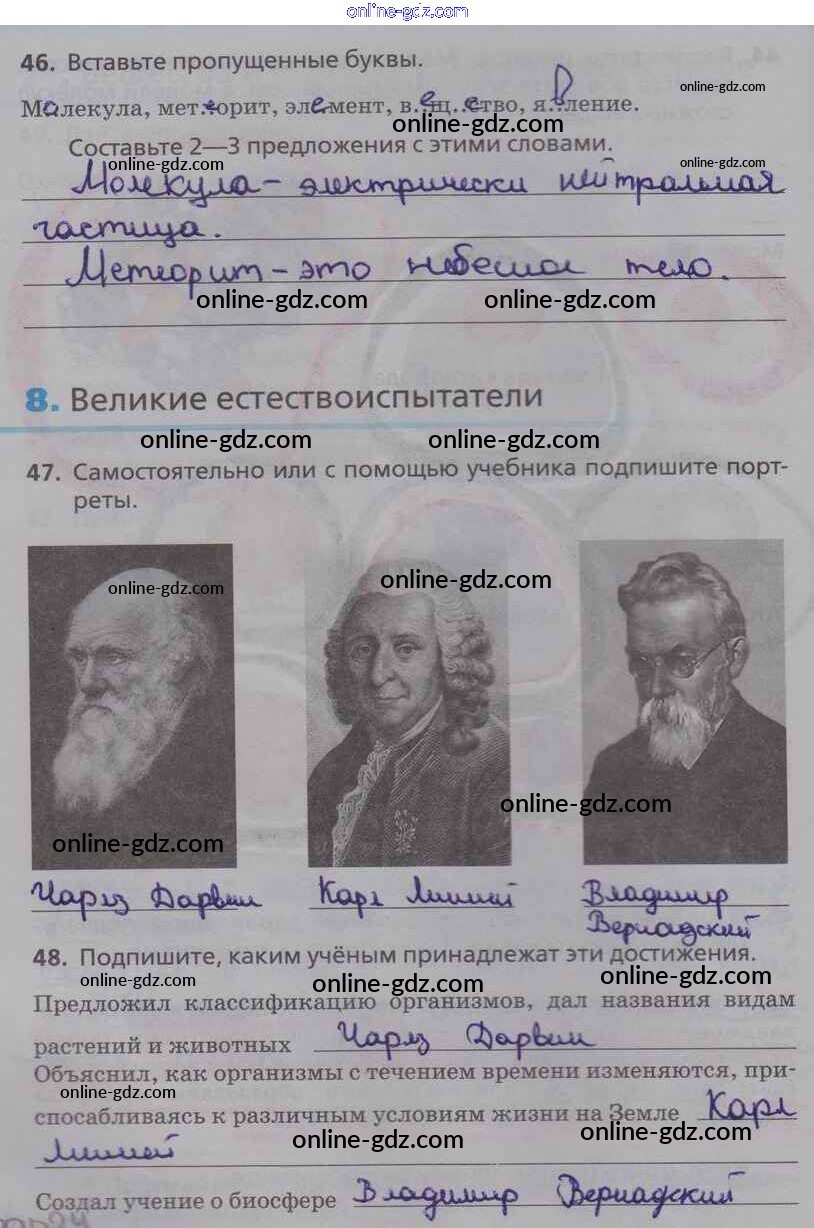 online-gdz.com
46. Вставьте пропущенные буквы.
online-gdz.com
Молекула, мет..еорит, элемент, в..ещ..ество, я..вление.
online-gdz.com
Составьте 2—3 предложения с этими словами.
online-gdz.com online-gdz.com
Молекула – электрически нейтральная
частица.
Метеорит – это небесное тело.
online-gdz.com online-gdz.com
8. Великие естествоиспытатели
online-gdz.com online-gdz.com
47. Самостоятельно или с помощью учебника подпишите порт-
реты.
online-gdz.com online-gdz.com
online-gdz.com
online-gdz.com
Чарлз Дарвин Карл Линней Владимир
Вернадский
48. Подпишите, каким учёным принадлежат эти достижения.
online-gdz.com online-gdz.com online-gdz.com
Предложил классификацию организмов, дал названия видам
растений и животных Чарлз Дарвин
Объяснил, как организмы с течением времени изменяются, при-
online-gdz.com
спосабливаясь к различным условиям жизни на Земле Карл
online-gdz.com online-gdz.com
Линней
Создал учение о биосфере Владимир Вернадский